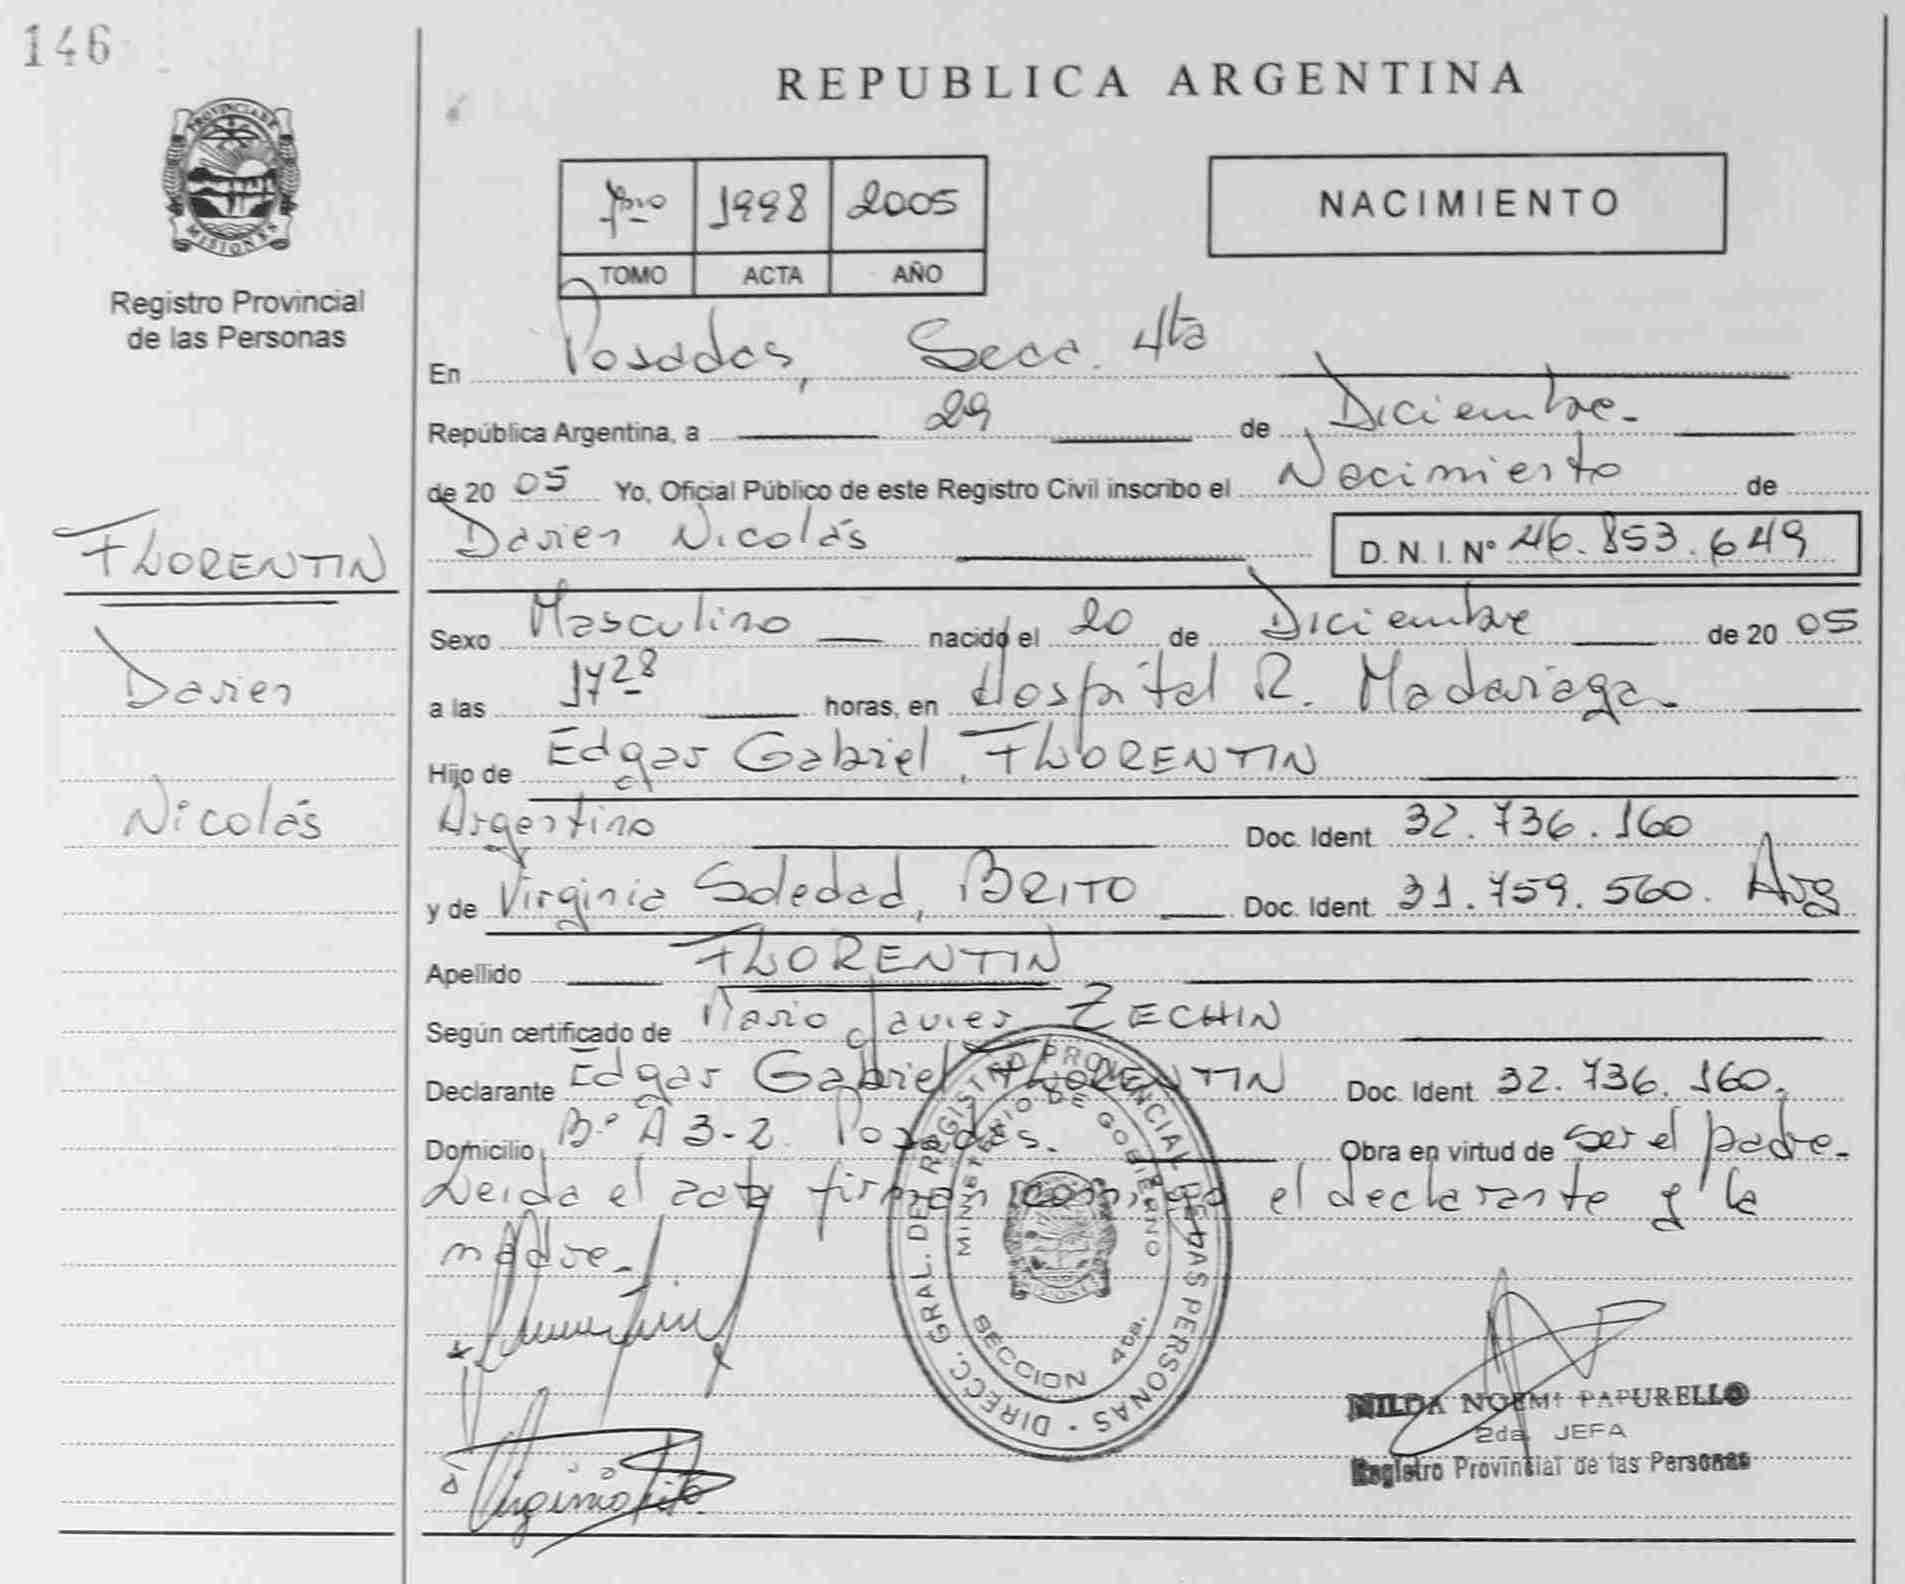 146
PROVINCIA DE
MISIONES
Registro Provincial
de las Personas
REPUBLICA ARGENTINA
1998 2005
TOMO ACTA AÑO
NACIMIENTO
En Posadas, Secc. 4ta
República Argentina, a 29 de Diciembre.
de 20 05 Yo, Oficial Público de este Registro Civil inscribo el Nacimiento de
Darien Nicolás D. N. I. N° 46.853.649
FLORENTIN
Darien
Nicolás
Sexo Masculino nacido el 20 de Diciembre de 20 05
a las 17 28 horas, en Hospital R. Madariaga.
Hijo de Edgar Gabriel, FLORENTIN
Argentino Doc. Ident. 32.736.160
y de Virginia Soledad, BRITO Doc. Ident. 31.759.560. Arg
Apellido FLORENTIN
Según certificado de Mario Javier ZECHIN
Declarante Edgar Gabriel FLORENTIN Doc. Ident. 32.736.160.
Domicilio B.° A 3-2. Posadas. Obra en virtud de ser el padre.
Leida el acta firman conmigo el declarante y la
madre.
DIRECC. GRAL. DE REGISTRO PROVINCIAL DE LAS PERSONAS
MINISTERIO DE GOBIERNO
MISIONES
SECCION 4ta.
NILDA NOEMI PAPURELLO
2da. JEFA
Registro Provincial de las Personas